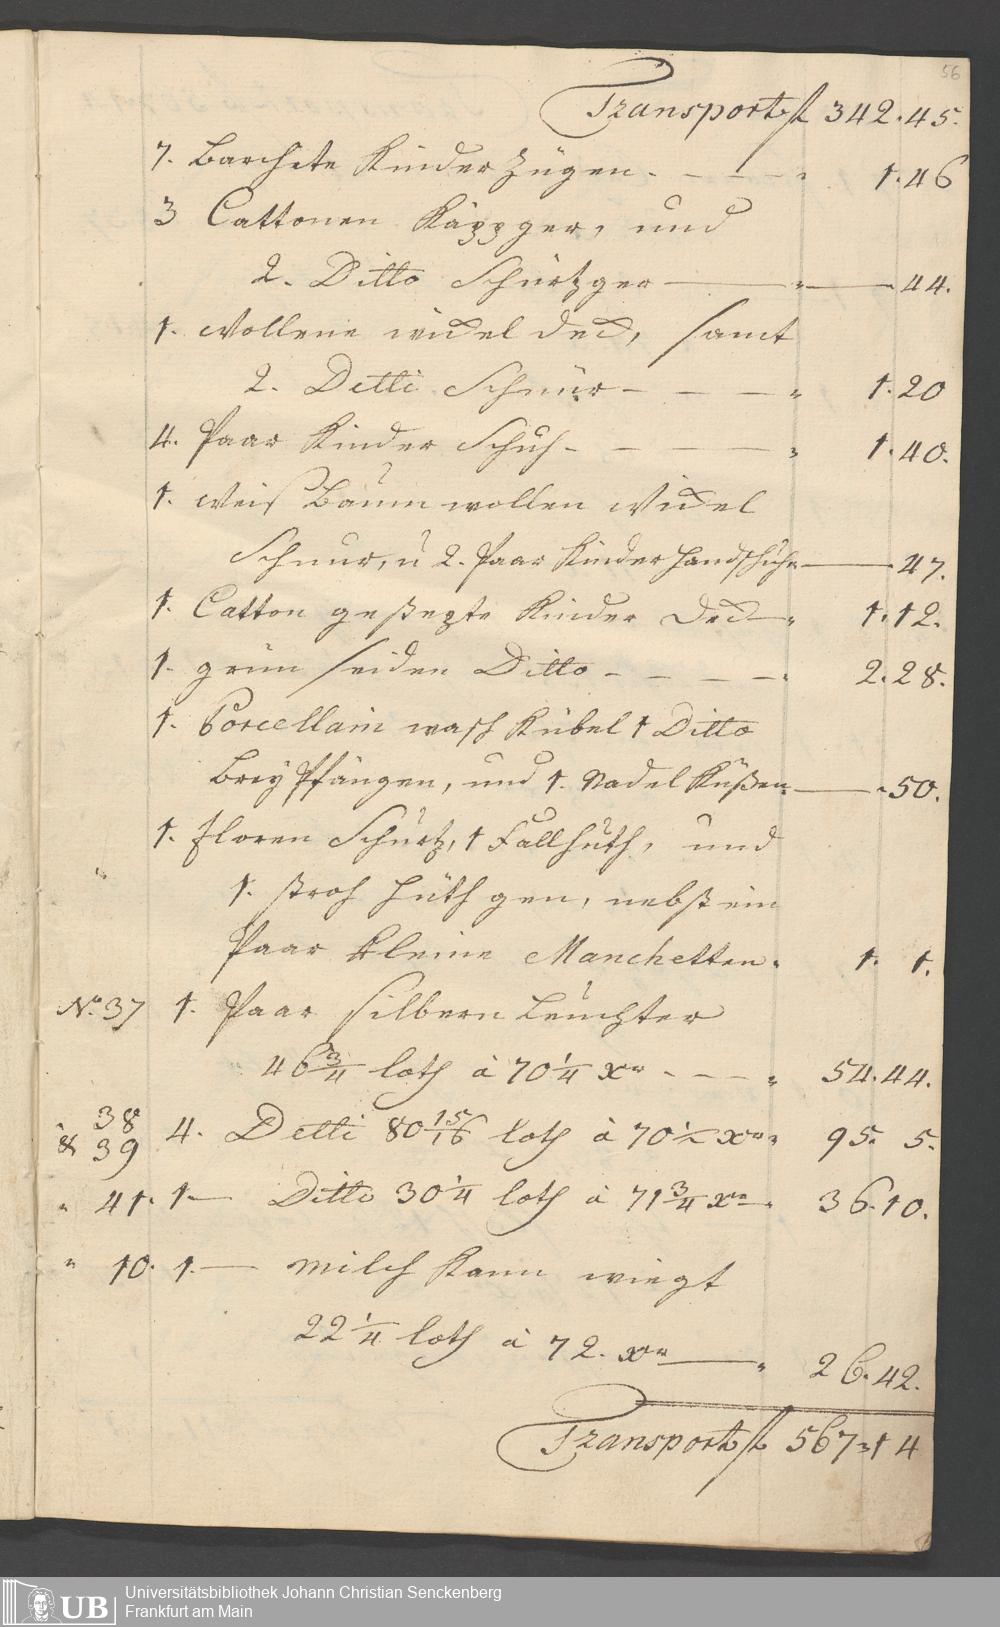 56
Transport f 342.45.
7. Barchete Kinder Zügen. - - - " 1.46
3 Cattonen Käppger, und
2. Ditto Schürtzger — " — 44.
1. Wollene wickel deck, samt
2. Ditti Schnür - - - " 1.20
4. Paar Kinder Schuh - - - " 1.40.
1. Weis Baumwollen Wickel
Schnur, u 2. Paar Kinder Handschuhe — 47.
1. Catton gesteppte Kinder Deck - " 1.12.
1. grün seiden Ditto - - - - " 2.28.
1. Porcellain wasch Kübel 1 Ditto
Brey Pfängen, und 1. Nadel Küßen — " 50.
1. floren Schürtz, 1 Fallhuth, und
1. stroh Hüthgen, nebst ein
Paar kleine Manchetten. 1. 1.
No. 37 1. Paar silbern Leuchter
46 3/4 loth à 70 1/4 xr - - - " 54.44.
" 38
& 39 4. Detti 80 15/16 loth à 70 1/2 xr " 95. 5.
" 41. 1.— Ditti 30 1/4 loth à 71 3/4 xr — " 36.10.
" 10. 1.— Milch Kann wiegt
22 1/4 loth à 72. xr — " 26.42.
Transport f 567.14
UB Universitätsbibliothek Johann Christian Senckenberg
Frankfurt am Main